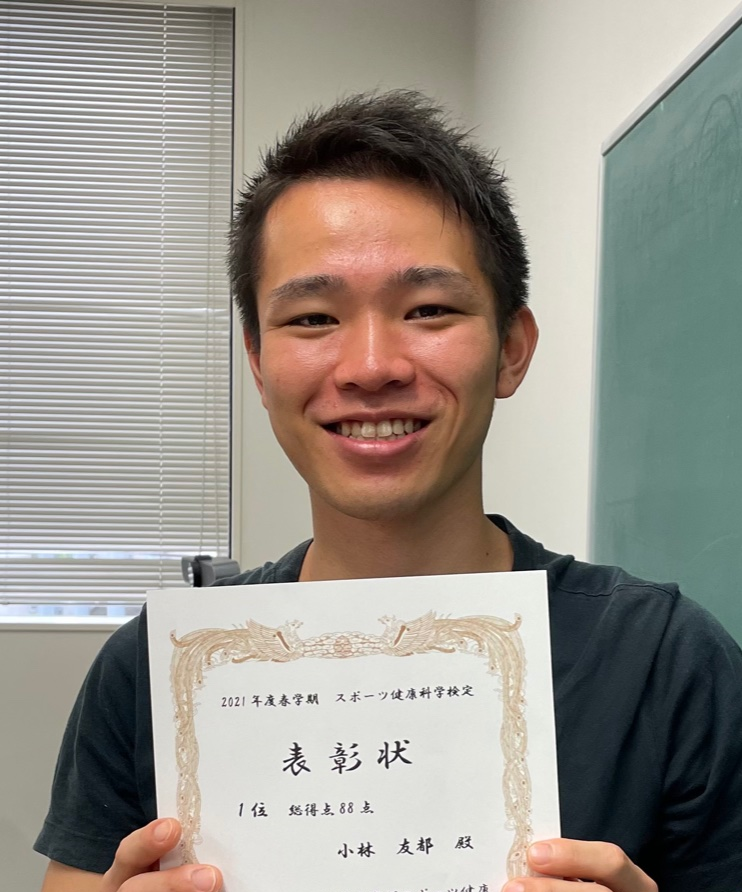 2021年度春学期　スポーツ健康科学検定
表彰状
1位　総得点88点
小林　友都　殿
スポーツ健康